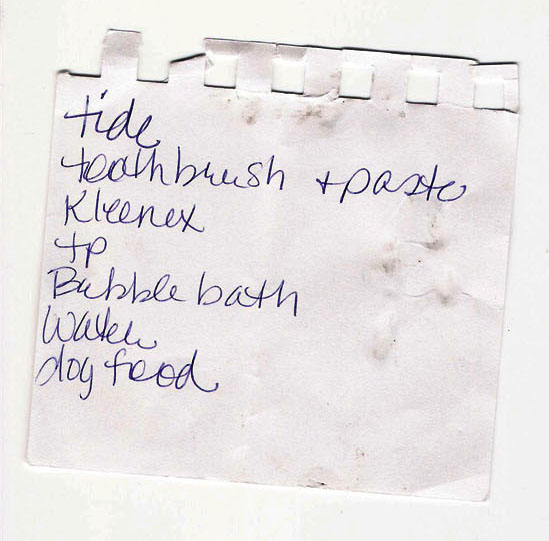 tide
toothbrush + paste
Kleenex
tp
Bubble bath
Water
dog food